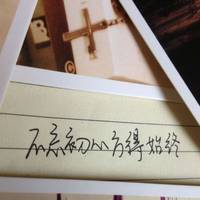 不忘初心方得始终